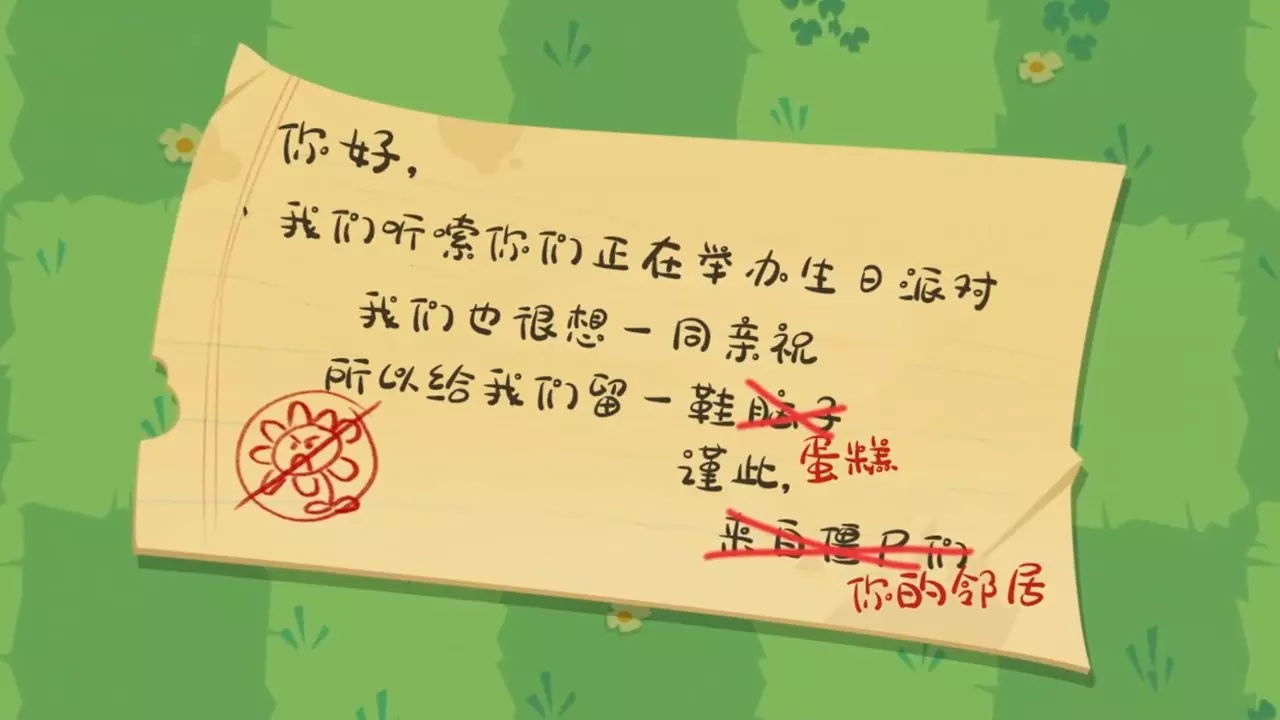 你好,
我们听嗦你们正在举办生日派对
我们也很想一同亲祝
所以给我们留一鞋脑子
谨此,蛋糕
来自僵尸们
你的邻居